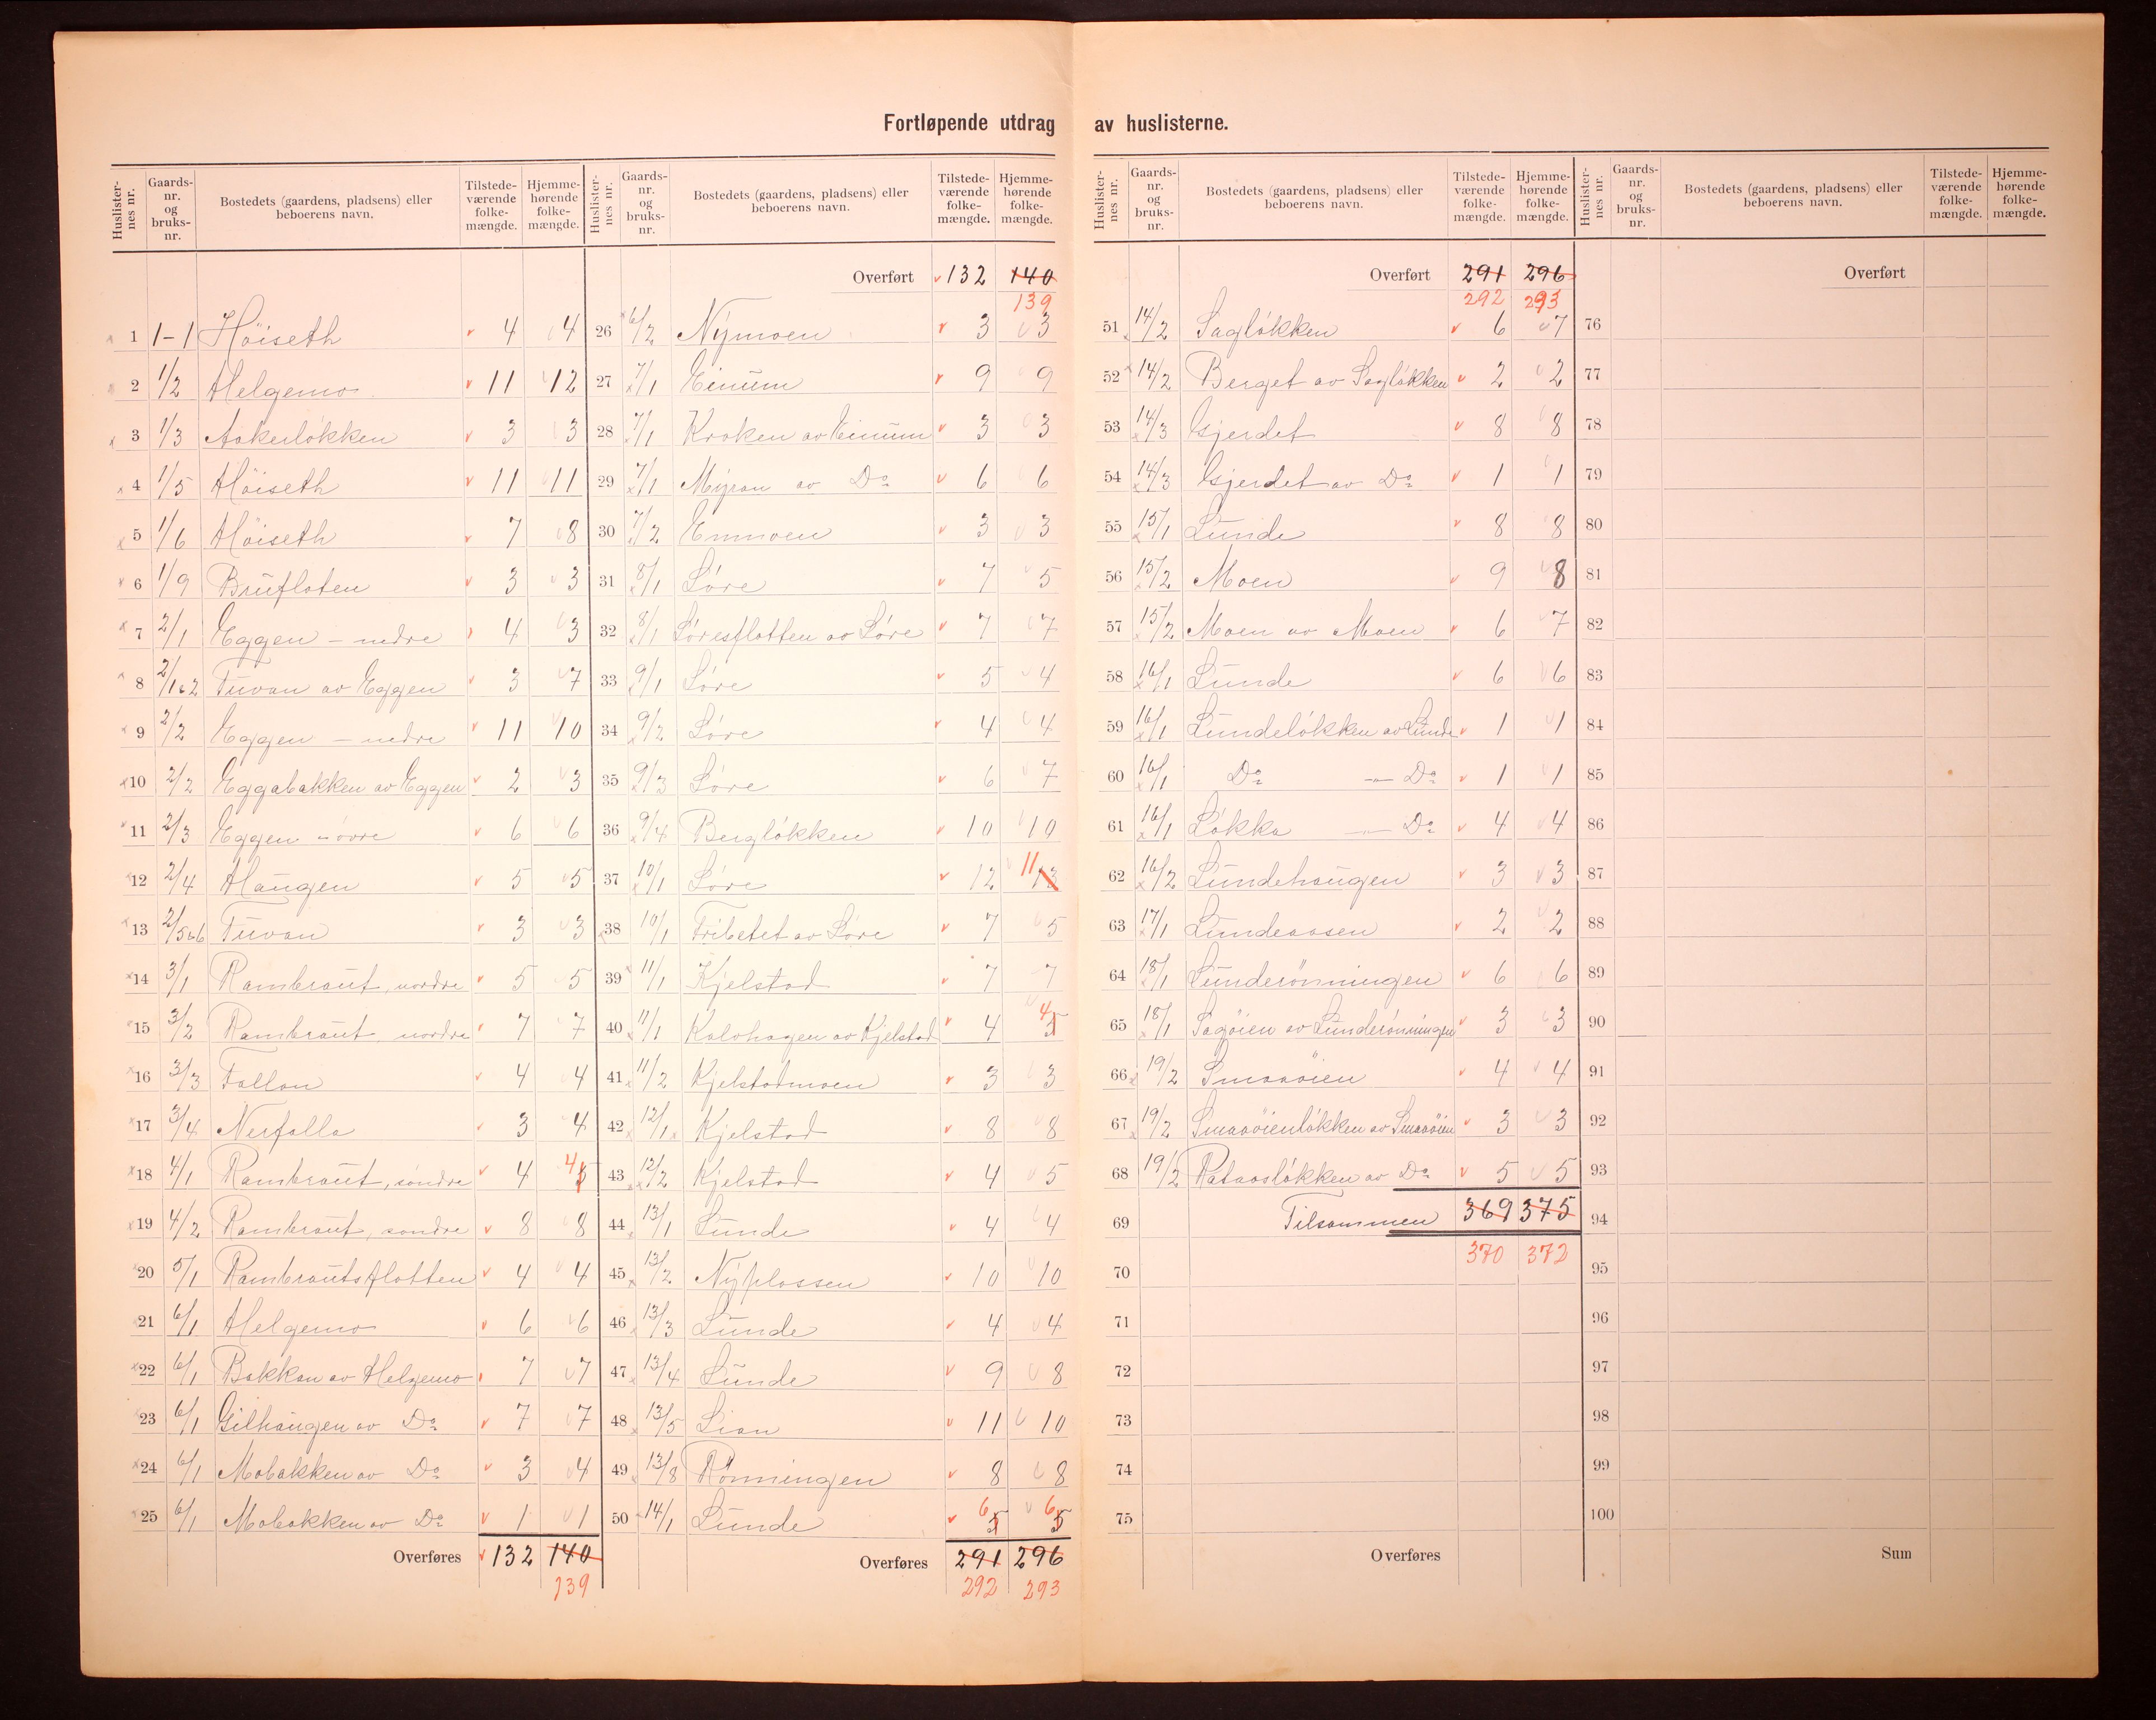 Fortløpende utdrag av huslisterne.
Huslisternes nr. | Gaards-nr. og bruks-nr. | Bostedets (gaardens, pladsens) eller beboerens navn. | Tilstedeværende folkemængde. | Hjemmehørende folkemængde.
1 1-1 Höiseth 4 4
2 1/2 Helgemo 11 12
3 1/3 Aakerløkken 3 3
4 1/5 Höiseth 11 11
5 1/6 Höiseth 7 8
6 1/9 Brufloten 3 3
7 2/1 Eggen - nedre 4 3
8 2/1&2 Tuvan av Eggen 3 7
9 2/2 Eggen - nedre 11 10
10 2/2 Eggabakken av Eggen 2 3
11 2/3 Eggen - övre 6 6
12 2/4 Haugen 5 5
13 2/5&6 Tuvan 3 3
14 3/1 Rambraut, nordre 5 5
15 3/2 Rambraut, nordre 7 7
16 3/3 Fallan 4 4
17 3/4 Nerfalla 3 4
18 4/1 Rambraut, söndre 4 4 5
19 4/2 Rambraut, söndre 8 8
20 5/1 Rambrautsflotten 4 4
21 6/1 Helgemo 6 6
22 6/1 Bakkan av Helgemo 7 7
23 6/1 Gilhaugen av Do 7 7
24 6/1 Mobakken av Do 3 4
25 6/1 Mobakken av Do 1 1
Overføres 132 140
139
Huslisternes nr. | Gaards-nr. og bruks-nr. | Bostedets (gaardens, pladsens) eller beboerens navn. | Tilstedeværende folkemængde. | Hjemmehørende folkemængde.
Overført 132 140
139
26 6/2 Nymoen 3 3
27 7/1 Einum 9 9
28 7/1 Kroken av Einum 3 3
29 7/1 Myran av Do 6 6
30 7/2 Enmoen 3 3
31 8/1 Løre 7 5
32 8/1 Løresflotten av Løre 7 7
33 9/1 Løre 5 4
34 9/2 Løre 4 4
35 9/3 Løre 6 7
36 9/4 Bergløkken 10 10
37 10/1 Løre 12 11 13
38 10/1 Fribetet av Løre 7 5
39 11/1 Kjelstad 7 7
40 11/1 Kalvhagen av Kjelstad 4 4 5
41 11/2 Kjelstadmoen 3 3
42 12/1 Kjelstad 8 8
43 12/2 Kjelstad 4 5
44 13/1 Lunde 4 4
45 13/2 Nyplassen 10 10
46 13/3 Lunde 4 4
47 13/4 Lunde 9 8
48 13/5 Lian 11 10
49 13/8 Rönningen 8 8
50 14/1 Lunde 6 5 6 5
Overføres 291 296
292 293
Huslisternes nr. | Gaards-nr. og bruks-nr. | Bostedets (gaardens, pladsens) eller beboerens navn. | Tilstedeværende folkemængde. | Hjemmehørende folkemængde.
Overført 291 296
292 293
51 14/2 Sagløkken 6 7
52 14/2 Berget av Sagløkken 2 2
53 14/3 Gjerdet 8 8
54 14/3 Gjerdet av Do 1 1
55 15/1 Lunde 8 8
56 15/2 Moen 9 8
57 15/2 Moen av Moen 6 7
58 16/1 Lunde 6 6
59 16/1 Lundeløkken av Lunde 1 1
60 16/1 Do - Do 1 1
61 16/1 Løkka - Do 4 4
62 16/2 Lundehaugen 3 3
63 17/1 Lundeaasen 2 2
64 18/1 Lunderönningen 6 6
65 18/1 Sagöien av Lunderönningen 3 3
66 19/2 Smaaöien 4 4
67 19/2 Smaaöienløkken av Smaaöien 3 3
68 19/2 Rataasløkken av Do 5 5
69 Tilsammen 369 375
370 372
70
71
72
73
74
75
Overføres
Huslisternes nr. | Gaards-nr. og bruks-nr. | Bostedets (gaardens, pladsens) eller beboerens navn. | Tilstedeværende folkemængde. | Hjemmehørende folkemængde.
Overført
76
77
78
79
80
81
82
83
84
85
86
87
88
89
90
91
92
93
94
95
96
97
98
99
100
Sum